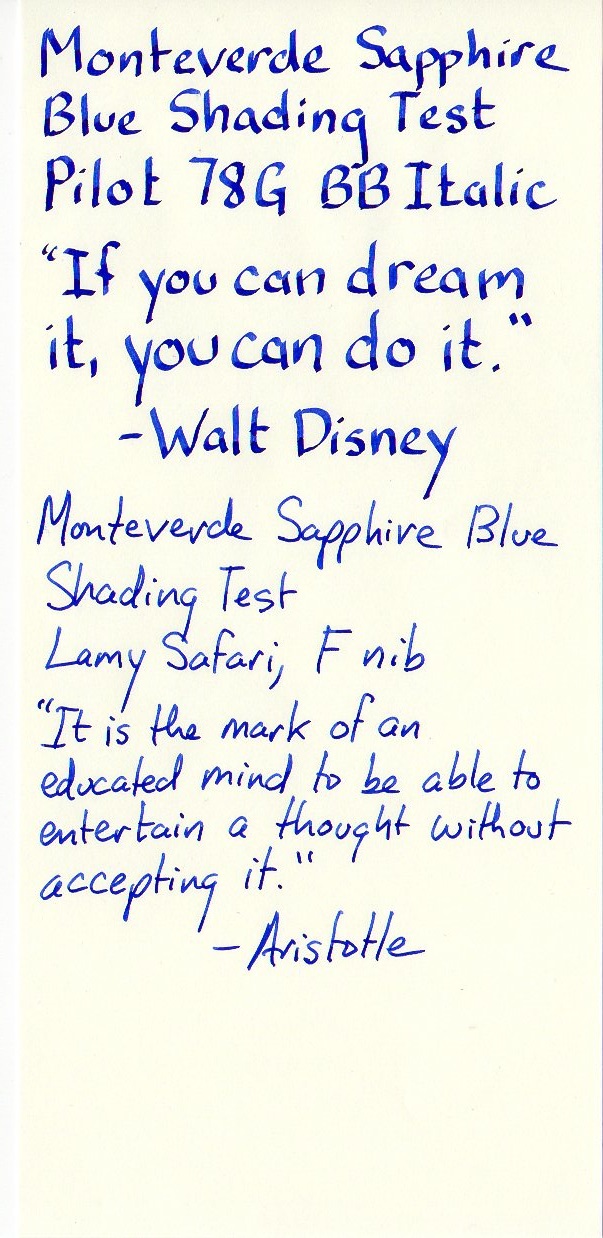 Monteverde Sapphire
Blue Shading Test
Pilot 78G BB Italic
"If you can dream
it, you can do it."
-Walt Disney
Monteverde Sapphire Blue
Shading Test
Lamy Safari, F nib
"It is the mark of an
educated mind to be able to
entertain a thought without
accepting it."
- Aristotle